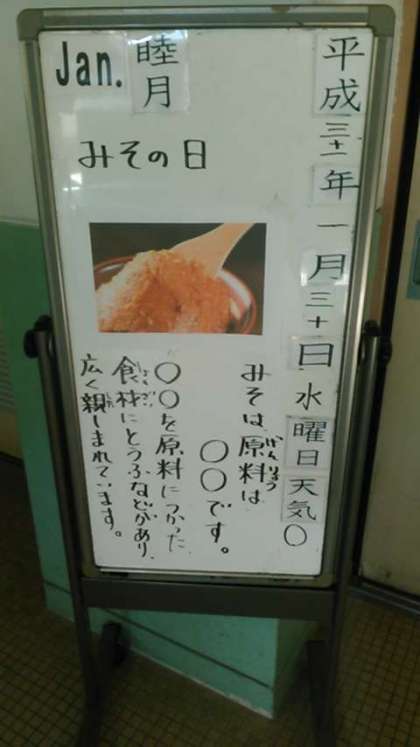 平成三十一年一月三十日水曜日天気〇
Jan.
睦月
みその日
みそは、原料は
げんりょう
〇〇です。
〇〇を原料につかった
食材にとうふなどがあり、
しょくざい
広く親しまれています。